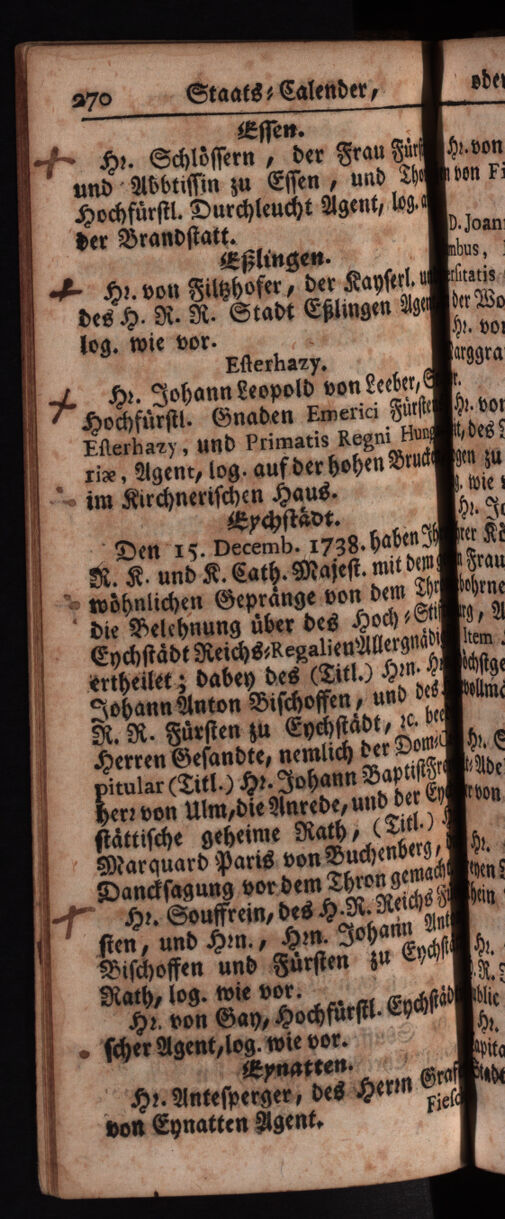 270 Staats-Calender,
Essen.
Hr. Schlössern, der Frau Fürst
und Abbtissin zu Essen, und Tho
Hochfürstl. Durchleucht Agent, log. a
der Brandstatt.
Eßlingen.
Hr. von Filtzhofer, der Kayserl. u
des H. R. R. Stadt Eßlingen Agen
log. wie vor.
Esterhazy.
Hr. Johann Leopold von Leeber, S
Hochfürstl. Gnaden Emerici Fürsten
Esterhazy, und Primatis Regni Hung
riæ, Agent, log. auf der hohen Brucken
im Kirchnerischen Haus.
Eychstädt.
Den 15. Decemb. 1738. haben Ih
R. K. und K. Cath. Majest. mit dem g
wöhnlichen Gepränge von dem Thr
die Belehnung über des Hoch-Stif
Eychstädt Reichs-Regalien Allergnädi
ertheilet; dabey des (Titl.) Hrn. H
Johann Anton Bischoffen, und des
R. R. Fürsten zu Eychstädt, ꝛc. bee
Herren Gesandte, nemlich der Dom-C
pitular (Titl.) Hr. Johann Baptist Fre
herr von Ulm, die Anrede, und der Ey
stättische geheime Rath, (Titl.) H
Marquard Paris von Buchenberg, d
Dancksagung vor dem Thron gemacht
Hr. Souffrein, des H. R. Reichs Fü
sten, und Hrn., Hrn. Johann Ant
Bischoffen und Fürsten zu Eychstä
Rath, log. wie vor.
Hr. von Gay, Hochfürstl. Eychstäd
scher Agent, log. wie vor.
Eynatten.
Hr. Antesperger, des Herrn Graf
von Eynatten Agent.